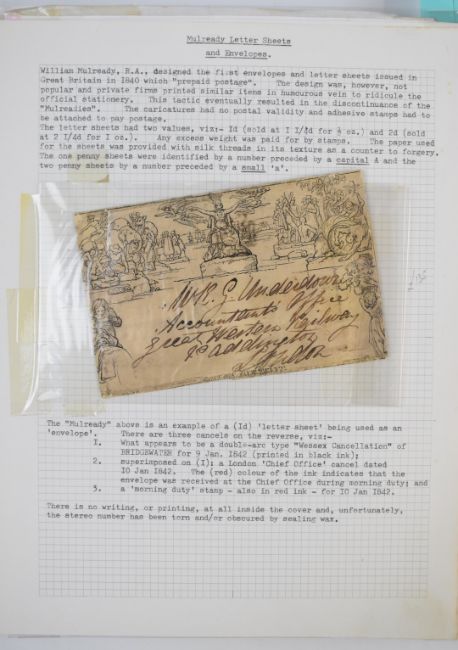 Mulready Letter Sheets
and Envelopes.
William Mulready, R.A., designed the first envelopes and letter sheets issued in
Great Britain in 1840 which "prepaid postage". The design was, however, not
popular and private firms printed similar items in humourous vein to ridicule the
official stationery. This tactic eventually resulted in the discontinuance of the
"Mulreadies". The caricatures had no postal validity and adhesive stamps had to
be attached to pay postage.
The letter sheets had two values, viz:- Id (sold at I I/4d for ½ oz.) and 2d (sold
at 2 I/4d for I oz.). Any excess weight was paid for by stamps. The paper used
for the sheets was provided with milk threads in its texture as a counter to forgery.
The one penny sheets were identified by a number preceded by a capital A and the
two penny sheets by a number preceded by a small 'a'.
Mr. G Underdown
Accountants Office
Great Western Railway
Paddington
London
The "Mulready" above is an example of a (Id) 'letter sheet' being used as an
'envelope'. There are three cancels on the reverse, viz:-
I. What appears to be a double-arc type "Wessex Cancellation" of
BRIDGEWATER for 9 Jan. 1842 (printed in black ink);
2. superimposed on (I); a London 'Chief Office' cancel dated
IO Jan 1842. The (red) colour of the ink indicates that the
envelope was received at the Chief Office during morning duty; and
3. a 'morning duty' stamp - also in red ink - for IO Jan 1842.
There is no writing, or printing, at all inside the cover and, unfortunately,
the stereo number has been torn and/or obscured by sealing wax.